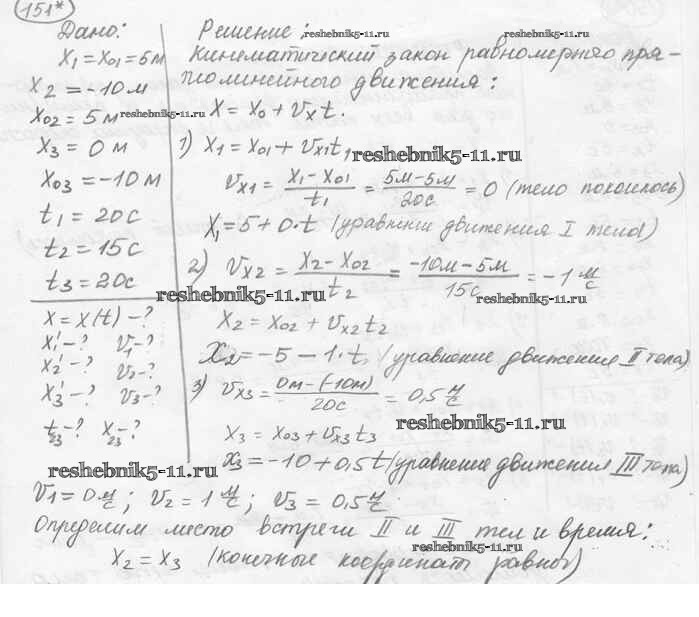 151*
Дано:
x₁ = x₀₁ = 5м
x₂ = -10м
x₀₂ = 5м
x₃ = 0м
x₀₃ = -10м
t₁ = 20с
t₂ = 15с
t₃ = 20с
x = x(t) - ?
x₁' - ? v₁ - ?
x₂' - ? v₂ - ?
x₃' - ? v₃ - ?
t₂₃ - ? x₂₃ - ?
Решение:
reshebnik5-11.ru
reshebnik5-11.ru
Кинематический закон равномерного пря-
молинейного движения:
x = x₀ + vₓt.
reshebnik5-11.ru
1) x₁ = x₀₁ + vₓ₁t₁
reshebnik5-11.ru
vₓ₁ = (x₁ - x₀₁)/t₁ = (5м - 5м)/20с = 0 (тело покоилось)
x₁ = 5 + 0·t (уравнение движения I тела)
2) vₓ₂ = (x₂ - x₀₂)/t₂ = (-10м - 5м)/15с = -1 м/с
reshebnik5-11.ru
reshebnik5-11.ru
x₂ = x₀₂ + vₓ₂t₂
x₂ = -5 - 1·t, (уравнение движения II тела)
3) vₓ₃ = (0м - (-10м))/20с = 0,5 м/с
reshebnik5-11.ru
x₃ = x₀₃ + vₓ₃t₃
x₃ = -10 + 0,5t (уравнение движения III тела)
reshebnik5-11.ru
v₁ = 0 м/с; v₂ = 1 м/с; v₃ = 0,5 м/с
Определим место встречи II и III тел и время:
reshebnik5-11.ru
x₂ = x₃ (конечные координаты равны)